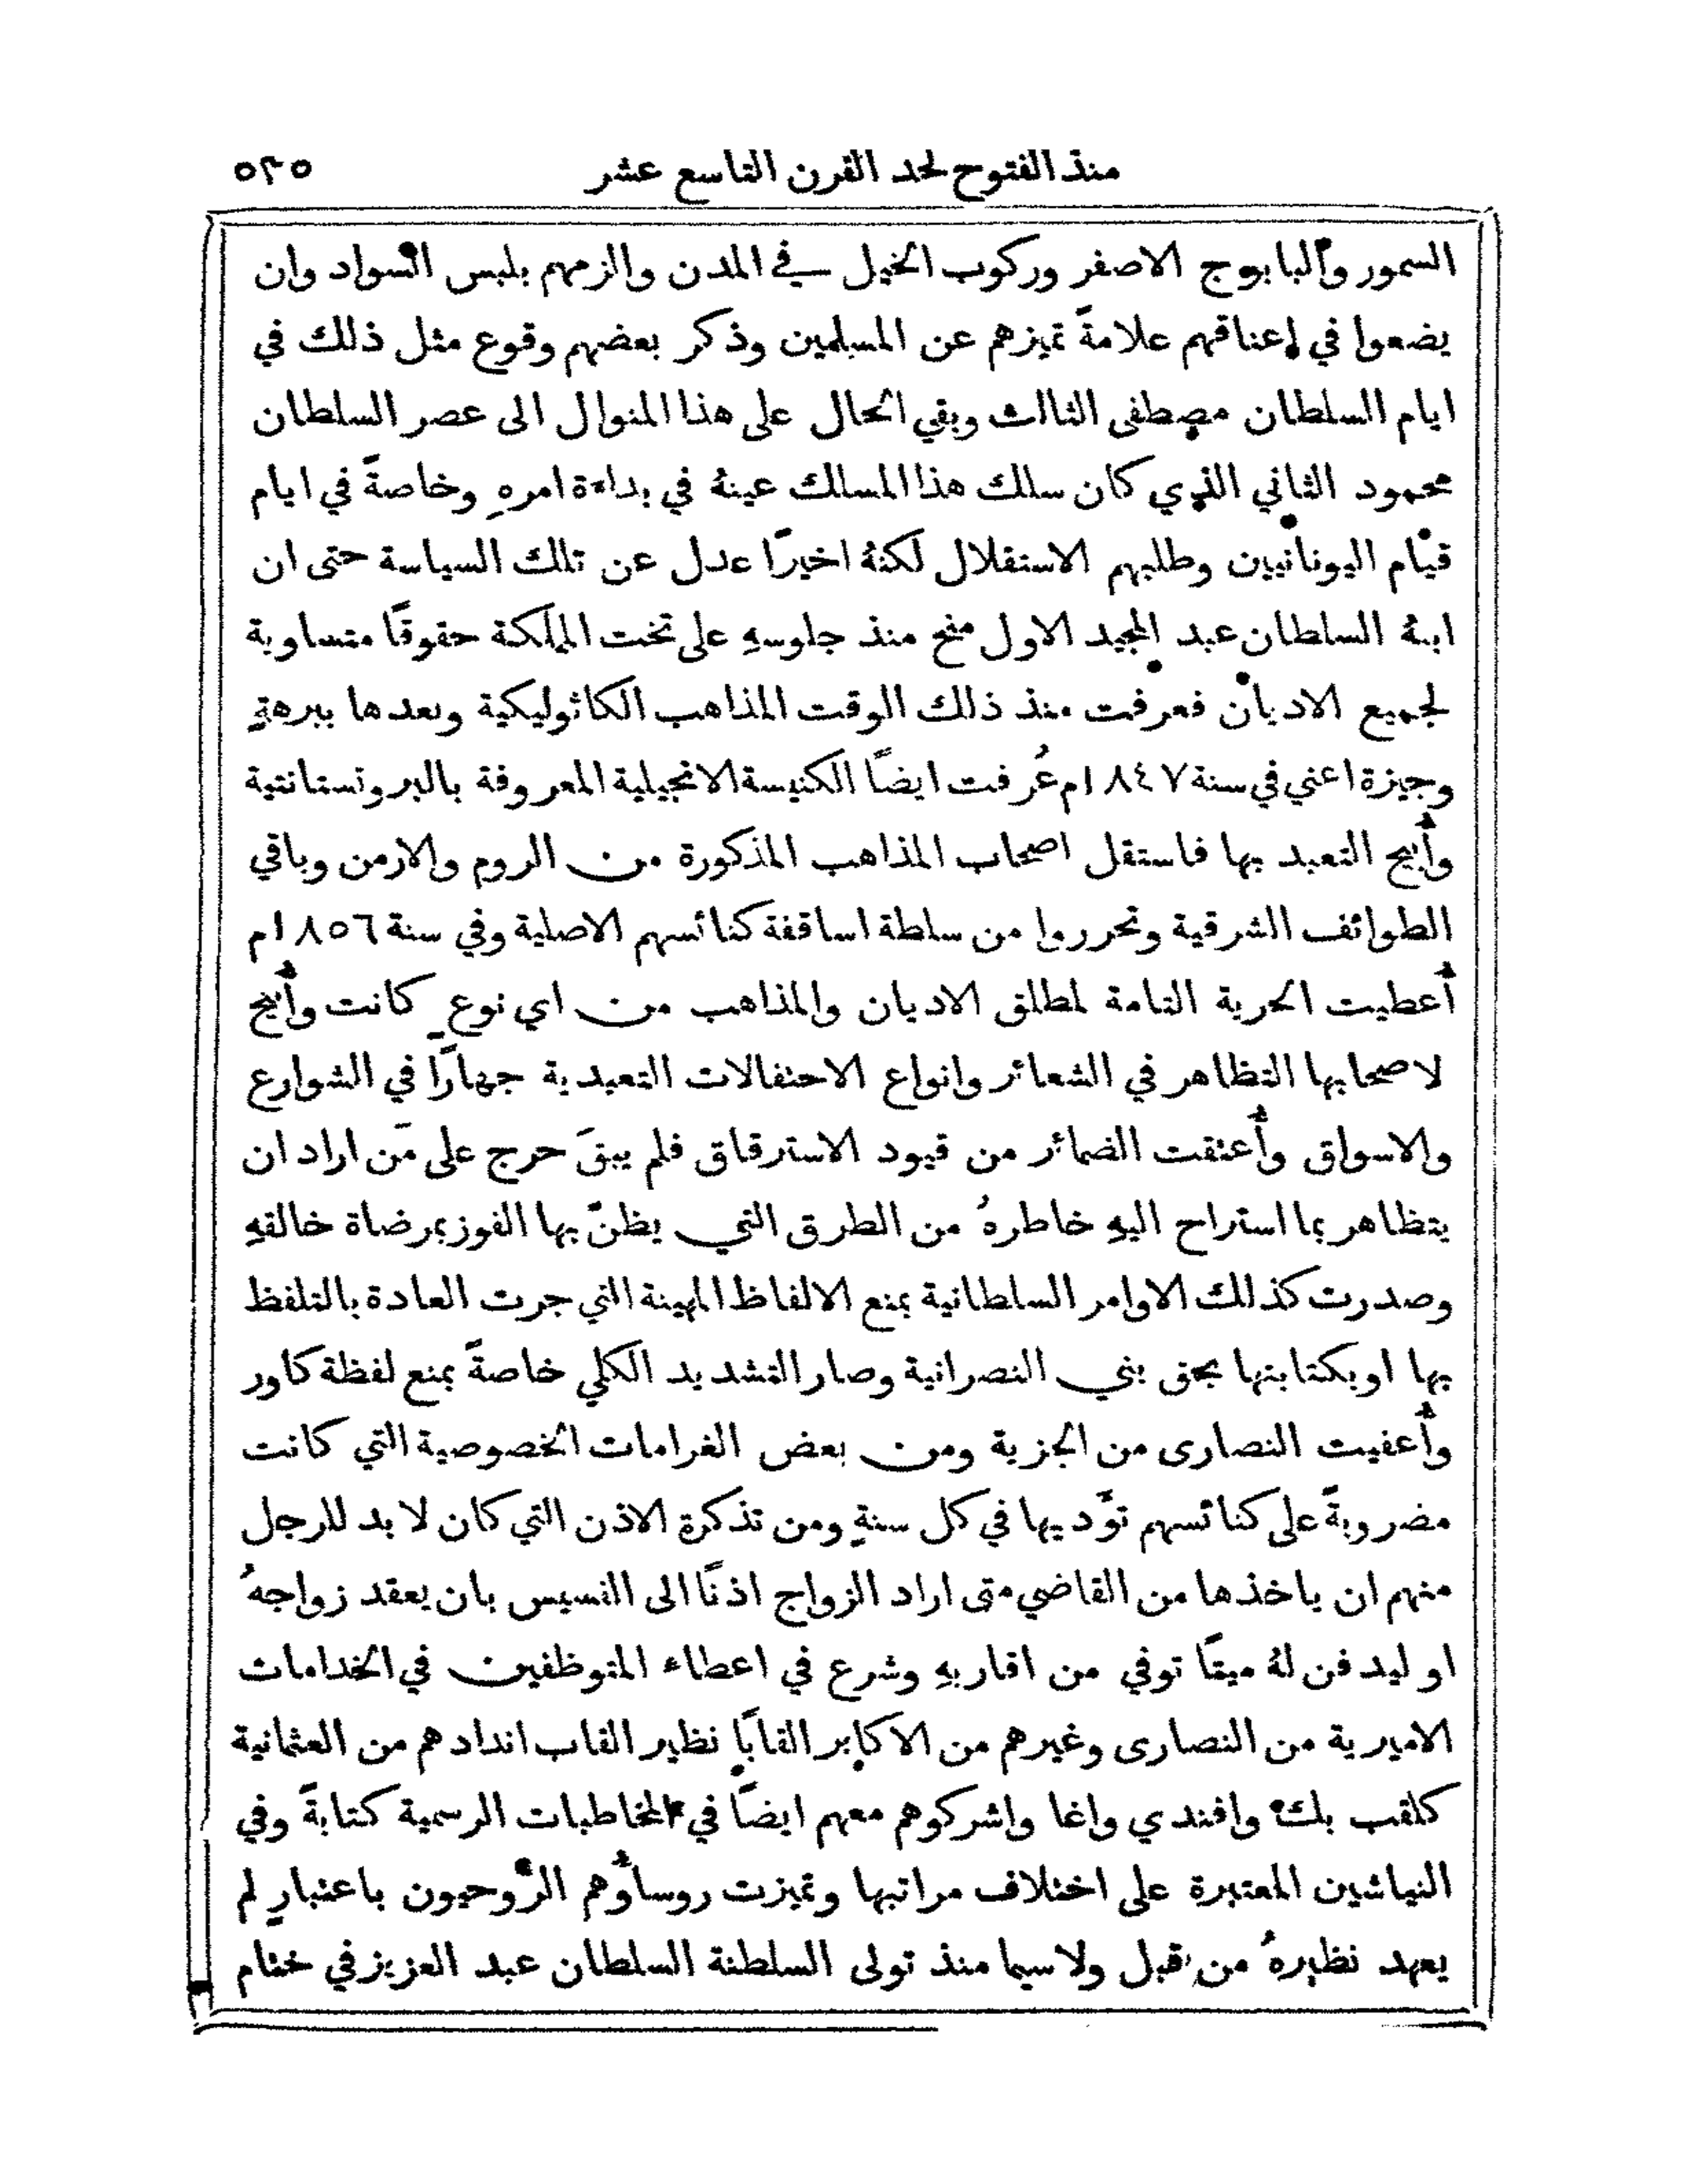 منذ الفتوح لحد القرن التاسع عشر ٥٣٥
السمور والبابوج الاصفر وركوب الخيل في المدن والزمهم بلبس السواد وان
يضعوا في اعناقهم علامةً تميزهم عن المسلمين وذكر بعضهم وقوع مثل ذلك في
ايام السلطان مصطفى الثالث وبقي الحال على هذا المنوال الى عصر السلطان
محمود الثاني الذي كان سلك هذا المسلك عينهُ في بداءة امرهِ وخاصةً في ايام
قيام اليونانيين وطلبهم الاستقلال لكنهُ اخيرًا عدل عن تلك السياسة حتى ان
ابنهُ السلطان عبد المجيد الاول منح منذ جلوسهِ على تخت المملكة حقوقًا متساوية
لجميع الاديان فعرفت منذ ذلك الوقت المذاهب الكاثوليكية وبعدها ببرهةٍ
وجيزة اعني في سنة ١٨٤٧م عُرفت ايضًا الكنيسة الانجيلية المعروفة بالبروتستانتية
وأُبيح التعبد بها فاستقل اصحاب المذاهب المذكورة من الروم والارمن وباقي
الطوائف الشرقية وتحرروا من سلطة اساقفة كنائسهم الاصلية وفي سنة ١٨٥٦م
أُعطيت الحرية التامة لمطلق الاديان والمذاهب من اي نوعٍ كانت وأُبيح
لاصحابها التظاهر في الشعائر وانواع الاحتفالات التعبدية جهارًا في الشوارع
والاسواق وأُعتقت الضمائر من قيود الاسترقاق فلم يبقَ حرج على مَن اراد ان
يتظاهر بما استراح اليهِ خاطرهُ من الطرق التي يظنّ بها الفوز بمرضاة خالقهِ
وصدرت كذلك الاوامر السلطانية بمنع الالفاظ المهينة التي جرت العادة بالتلفظ
بها او بكتابتها بحق بني النصرانية وصار التشديد الكلي خاصةً بمنع لفظة كاور
وأُعفيت النصارى من الجزية ومن بعض الغرامات الخصوصية التي كانت
مضروبةً على كنائسهم تؤَديها في كل سنةٍ ومن تذكرة الاذن التي كان لا بد للرجل
منهم ان ياخذها من القاضي متى اراد الزواج اذنًا الى القسيس بان يعقد زواجهُ
او ليدفن لهُ ميتًا توفي من اقاربهِ وشرع في اعطاء المتوظفين في الخدامات
الاميرية من النصارى وغيرهم من الاكابر القابًا نظير القاب اندادهم من العثمانية
كلقب بك وافندي واغا واشركوهم معهم ايضًا في المخاطبات الرسمية كتابةً وفي
النياشين المعتبرة على اختلاف مراتبها وتميزت روساؤُهم الروحيون باعتبارٍ لم
يعهد نظيرهُ من قبل ولاسيما منذ تولى السلطنة السلطان عبد العزيز في ختام